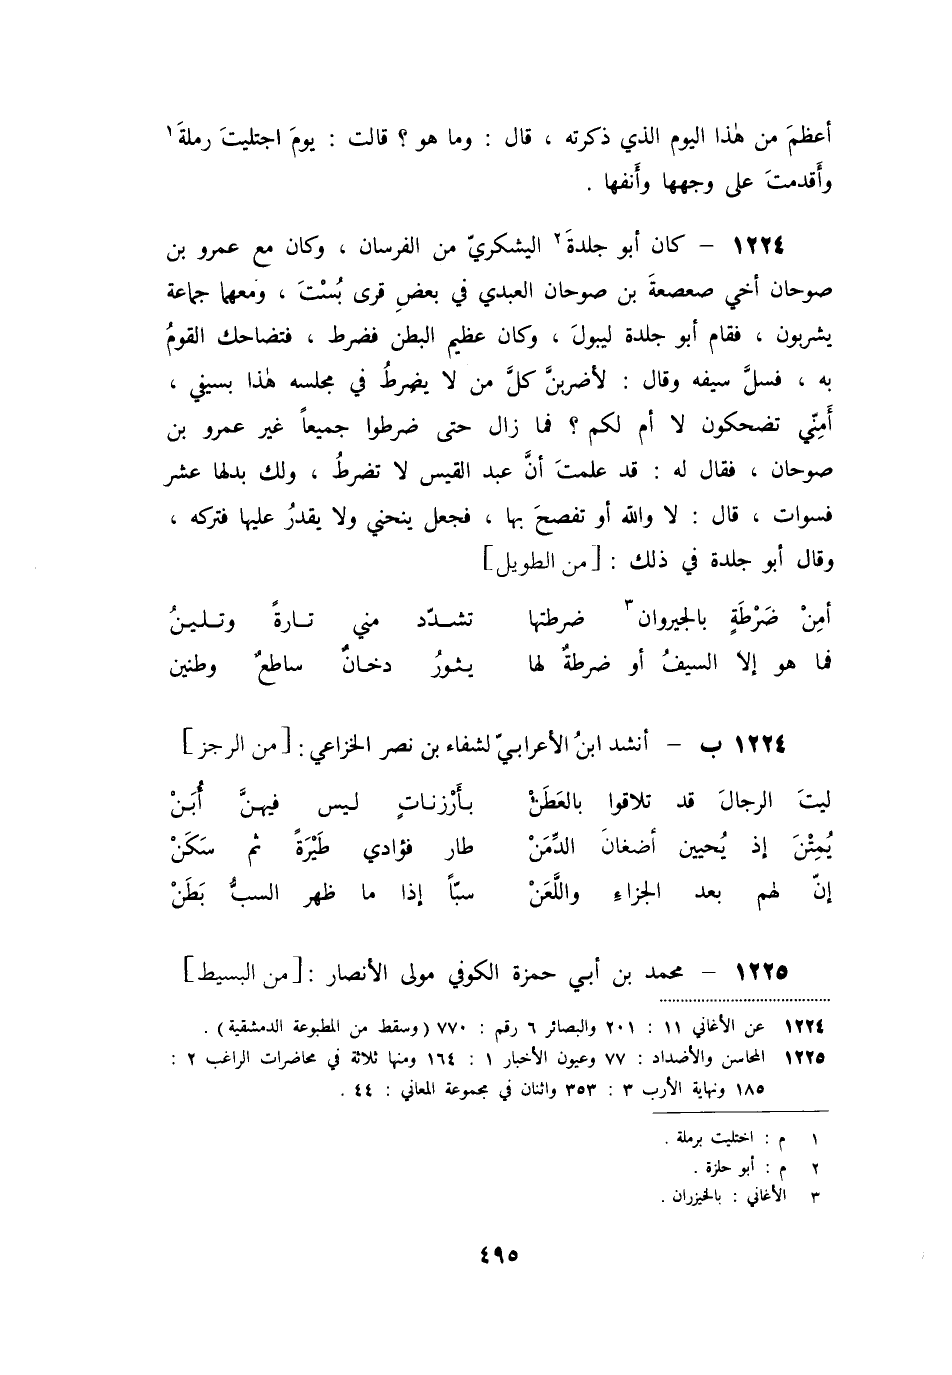 أعظمَ من هٰذا اليوم الذي ذكرته ، قال : وما هو ؟ قالت : يومَ اجتليتَ رملةَ١
وأَقدمتَ على وجهها وأَنفها .
١٢٢٤ – كان أبو جلدةَ٢ اليشكريّ من الفرسان ، وكان مع عمرو بن
صوحان أخي صعصعةَ بن صوحان العبدي في بعضِ قرى بُسْتَ ، ومعهما جماعة
يشربون ، فقام أبو جلدة ليبولَ ، وكان عظيم البطن فضرط ، فتضاحك القومُ
به ، فسلَّ سيفه وقال : لأضربنَّ كلَّ من لا يضرطُ في مجلسه هٰذا بسيفي ،
أَمِنّي تضحكون لا أم لكم ؟ فما زال حتى ضرطوا جميعاً غير عمرو بن
صوحان ، فقال له : قد علمتَ أنَّ عبد القيس لا تضرطُ ، ولك بدلها عشر
فسوات ، قال : لا والله أو تفصحَ بها ، فجعل ينحني ولا يقدرُ عليها فتركه ،
وقال أبو جلدة في ذلك : [من الطويل]
أمِنْ ضَرْطَةٍ بالجيروان٣ ضرطتها تشدّد مني تارةً وتلينُ
فما هو إلا السيفُ أو ضرطةٌ لها يثورُ دخانٌ ساطعٌ وطنين
١٢٢٤ ب – أنشد ابنُ الأعرابيّ لشفاء بن نصر الخزاعي : [من الرجز]
ليتَ الرجالَ قد تلاقوا بالعَطَنْ بأَرْزناتٍ ليس فيهنَّ أُبَنْ
يُمِتْنَ إذ يُحيين أضغانَ الدِّمَنْ طار فؤادي طَيْرَةً ثم سَكَنْ
إنّ لهم بعد الجزاءِ واللَّعَنْ سبّاً إذا ما ظهر السبُّ بَطَنْ
١٢٢٥ – محمد بن أبي حمزة الكوفي مولى الأنصار : [من البسيط]
١٢٢٤ عن الأغاني ١١ : ٢٠١ والبصائر ٦ رقم : ٧٧٠ (وسقط من المطبوعة الدمشقية) .
١٢٢٥ المحاسن والأضداد : ٧٧ وعيون الأخبار ١ : ١٦٤ ومنها ثلاثة في محاضرات الراغب ٢ :
١٨٥ ونهاية الأرب ٣ : ٣٥٣ واثنان في مجموعة المعاني : ٤٤ .
١ م : اختليت برملة .
٢ م : أبو حلزة .
٣ الأغاني : بالخيزران .
٤٩٥